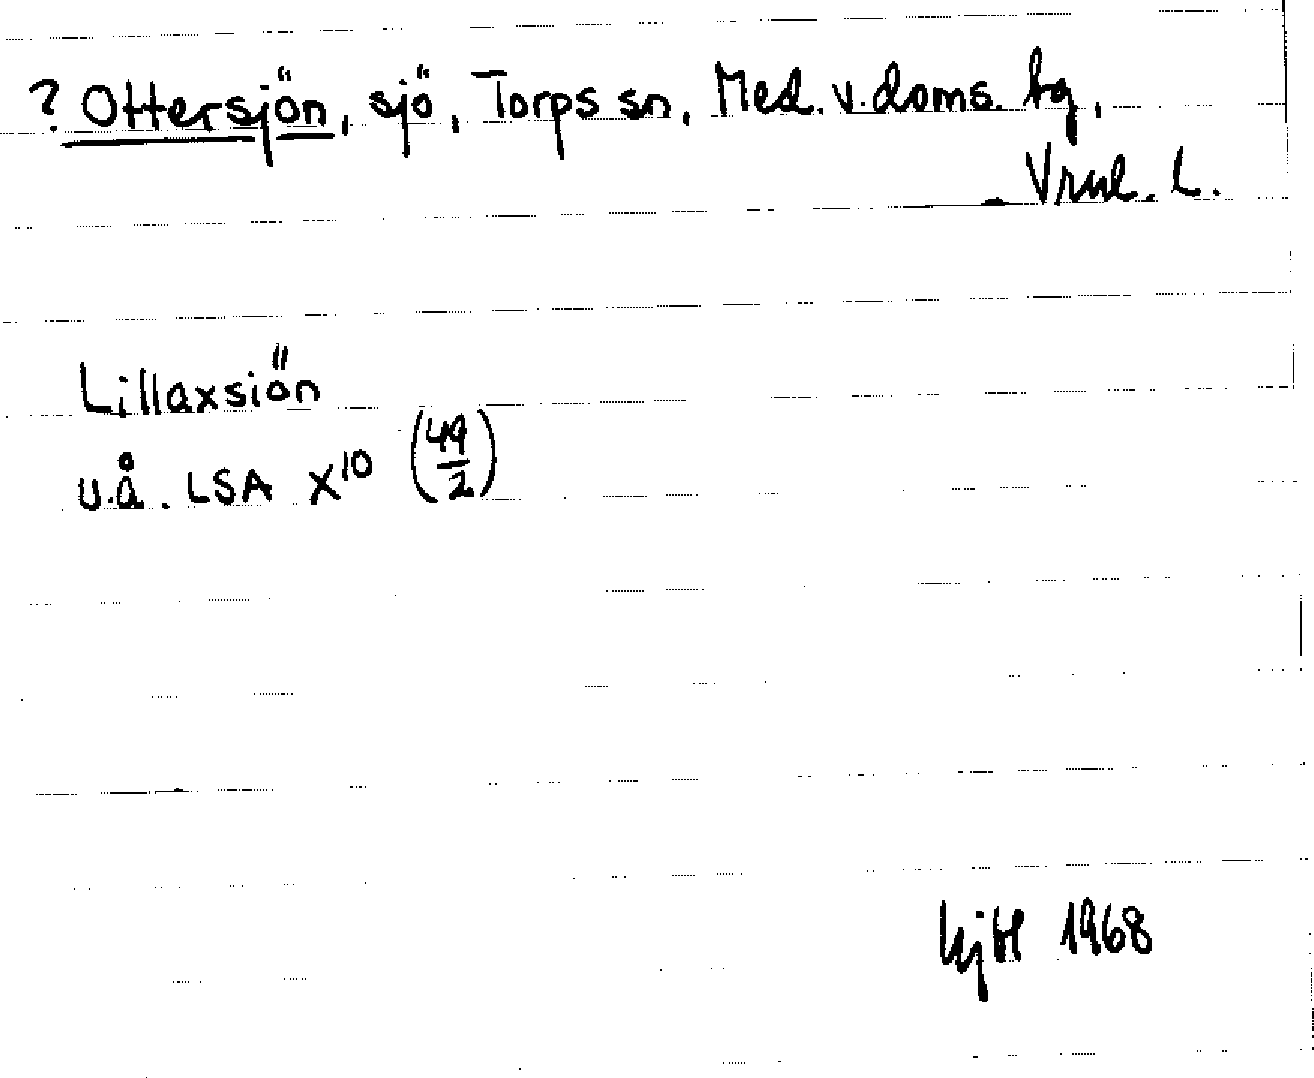 ? Ottersjön, sjö, Torps sn, Med. v. doms. tg,
Vrnl. L.
Lillaxsiön
u.å. LSA X¹⁰ (49/2)
1968